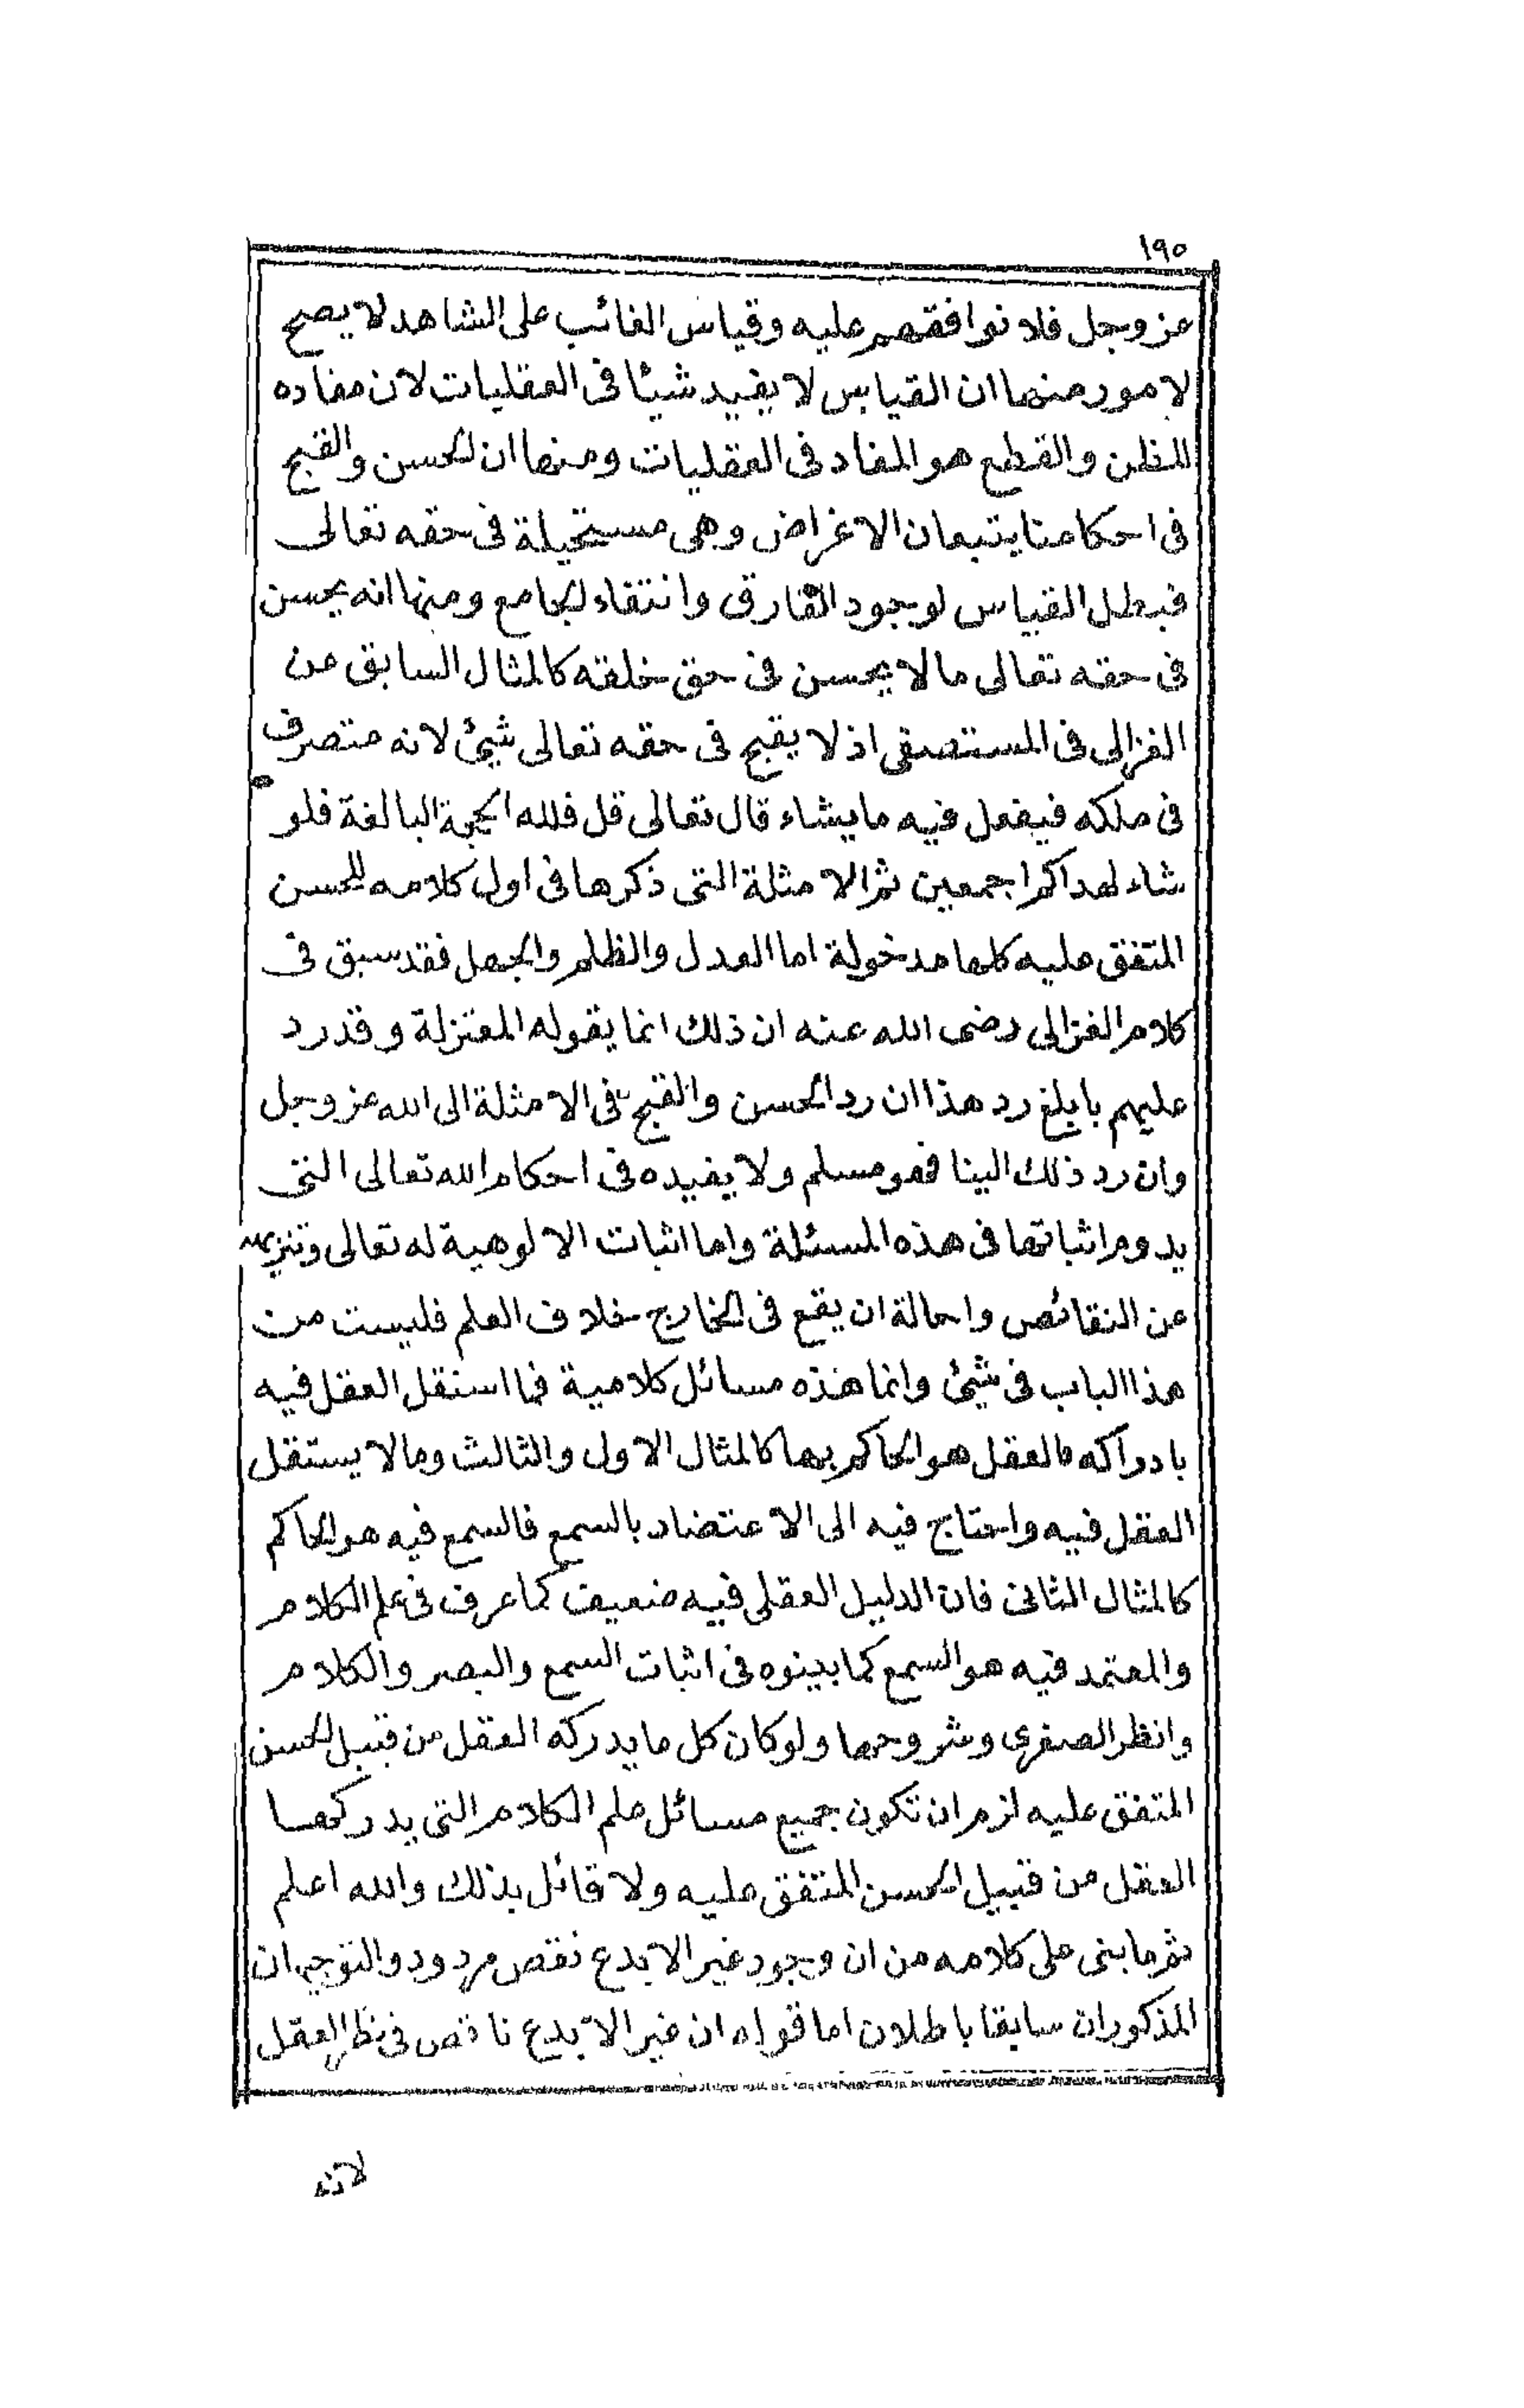 ١٩٠
عز وجل فلا نوافقهم عليه وقياس الغائب على الشاهد لا يصح
لامور منها ان القياس لا يفيد شيئا فى العقليات لان مفاده
الظن والقطع هو المفاد فى العقليات ومنها ان الحسن والقبح
فى احكامنا يتبعان الاغراض وهى مستحيلة فى حقه تعالى
فبطل القياس لوجود الفارق وانتفاء الجامع ومنها انه يحسن
فى حقه تعالى ما لا يحسن فى حق خلقه كالمثال السابق عن
الغزالى فى المستصفى اذ لا يقبح فى حقه تعالى شيئ لانه متصرف
فى ملكه فيفعل فيه ما يشاء قال تعالى قل فلله الحجة البالغة فلو
شاء لهداكم اجمعين ثم الامثلة التى ذكرها فى اول كلامه للحسن
المتفق عليه كلها مدخولة اما العدل والظلم والجهل فقد سبق فى
كلام الغزالى رضى الله عنه ان ذلك انما يقوله المعتزلة وقد رد
عليهم بابلغ رد هذا ان رد الحسن والقبح فى الامثلة الى الله عز وجل
وان رد ذلك الينا فهو مسلم ولا يفيده فى احكام الله تعالى التى
يدوم اثباتها فى هذه المسئلة واما اثبات الالوهية له تعالى وتنزيهه
عن النقائص واحالة ان يقع فى الخارج خلاف العلم فليست من
هذا الباب فى شيئ وانما هذه مسائل كلامية فما استقل العقل فيه
بادراكه فالعقل هو الحاكم بها كالمثال الاول والثالث وما لا يستقل
العقل فيه واحتاج فيه الى الاعتضاد بالسمع فالسمع فيه هو الحاكم
كالمثال الثانى فان الدليل العقلى فيه ضعيف كما عرف فى علم الكلام
والمعتمد فيه هو السمع كما بينوه فى اثبات السمع والبصر والكلام
وانظر الصغرى وشروحها ولو كان كل ما يدركه العقل من قبيل الحسن
المتفق عليه لزم ان تكون جميع مسائل علم الكلام التى يدركها
العقل من قبيل الحسن المتفق عليه ولا قائل بذلك والله اعلم
ثم ما بنى على كلامه من ان وجود غير الابدع نقص مردود والتوجيهان
المذكوران سابقا باطلان اما قوله ان غير الابدع ناقص فى نظر العقل
لانه